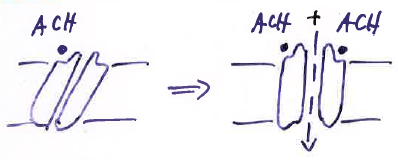 ACH
ACH + ACH